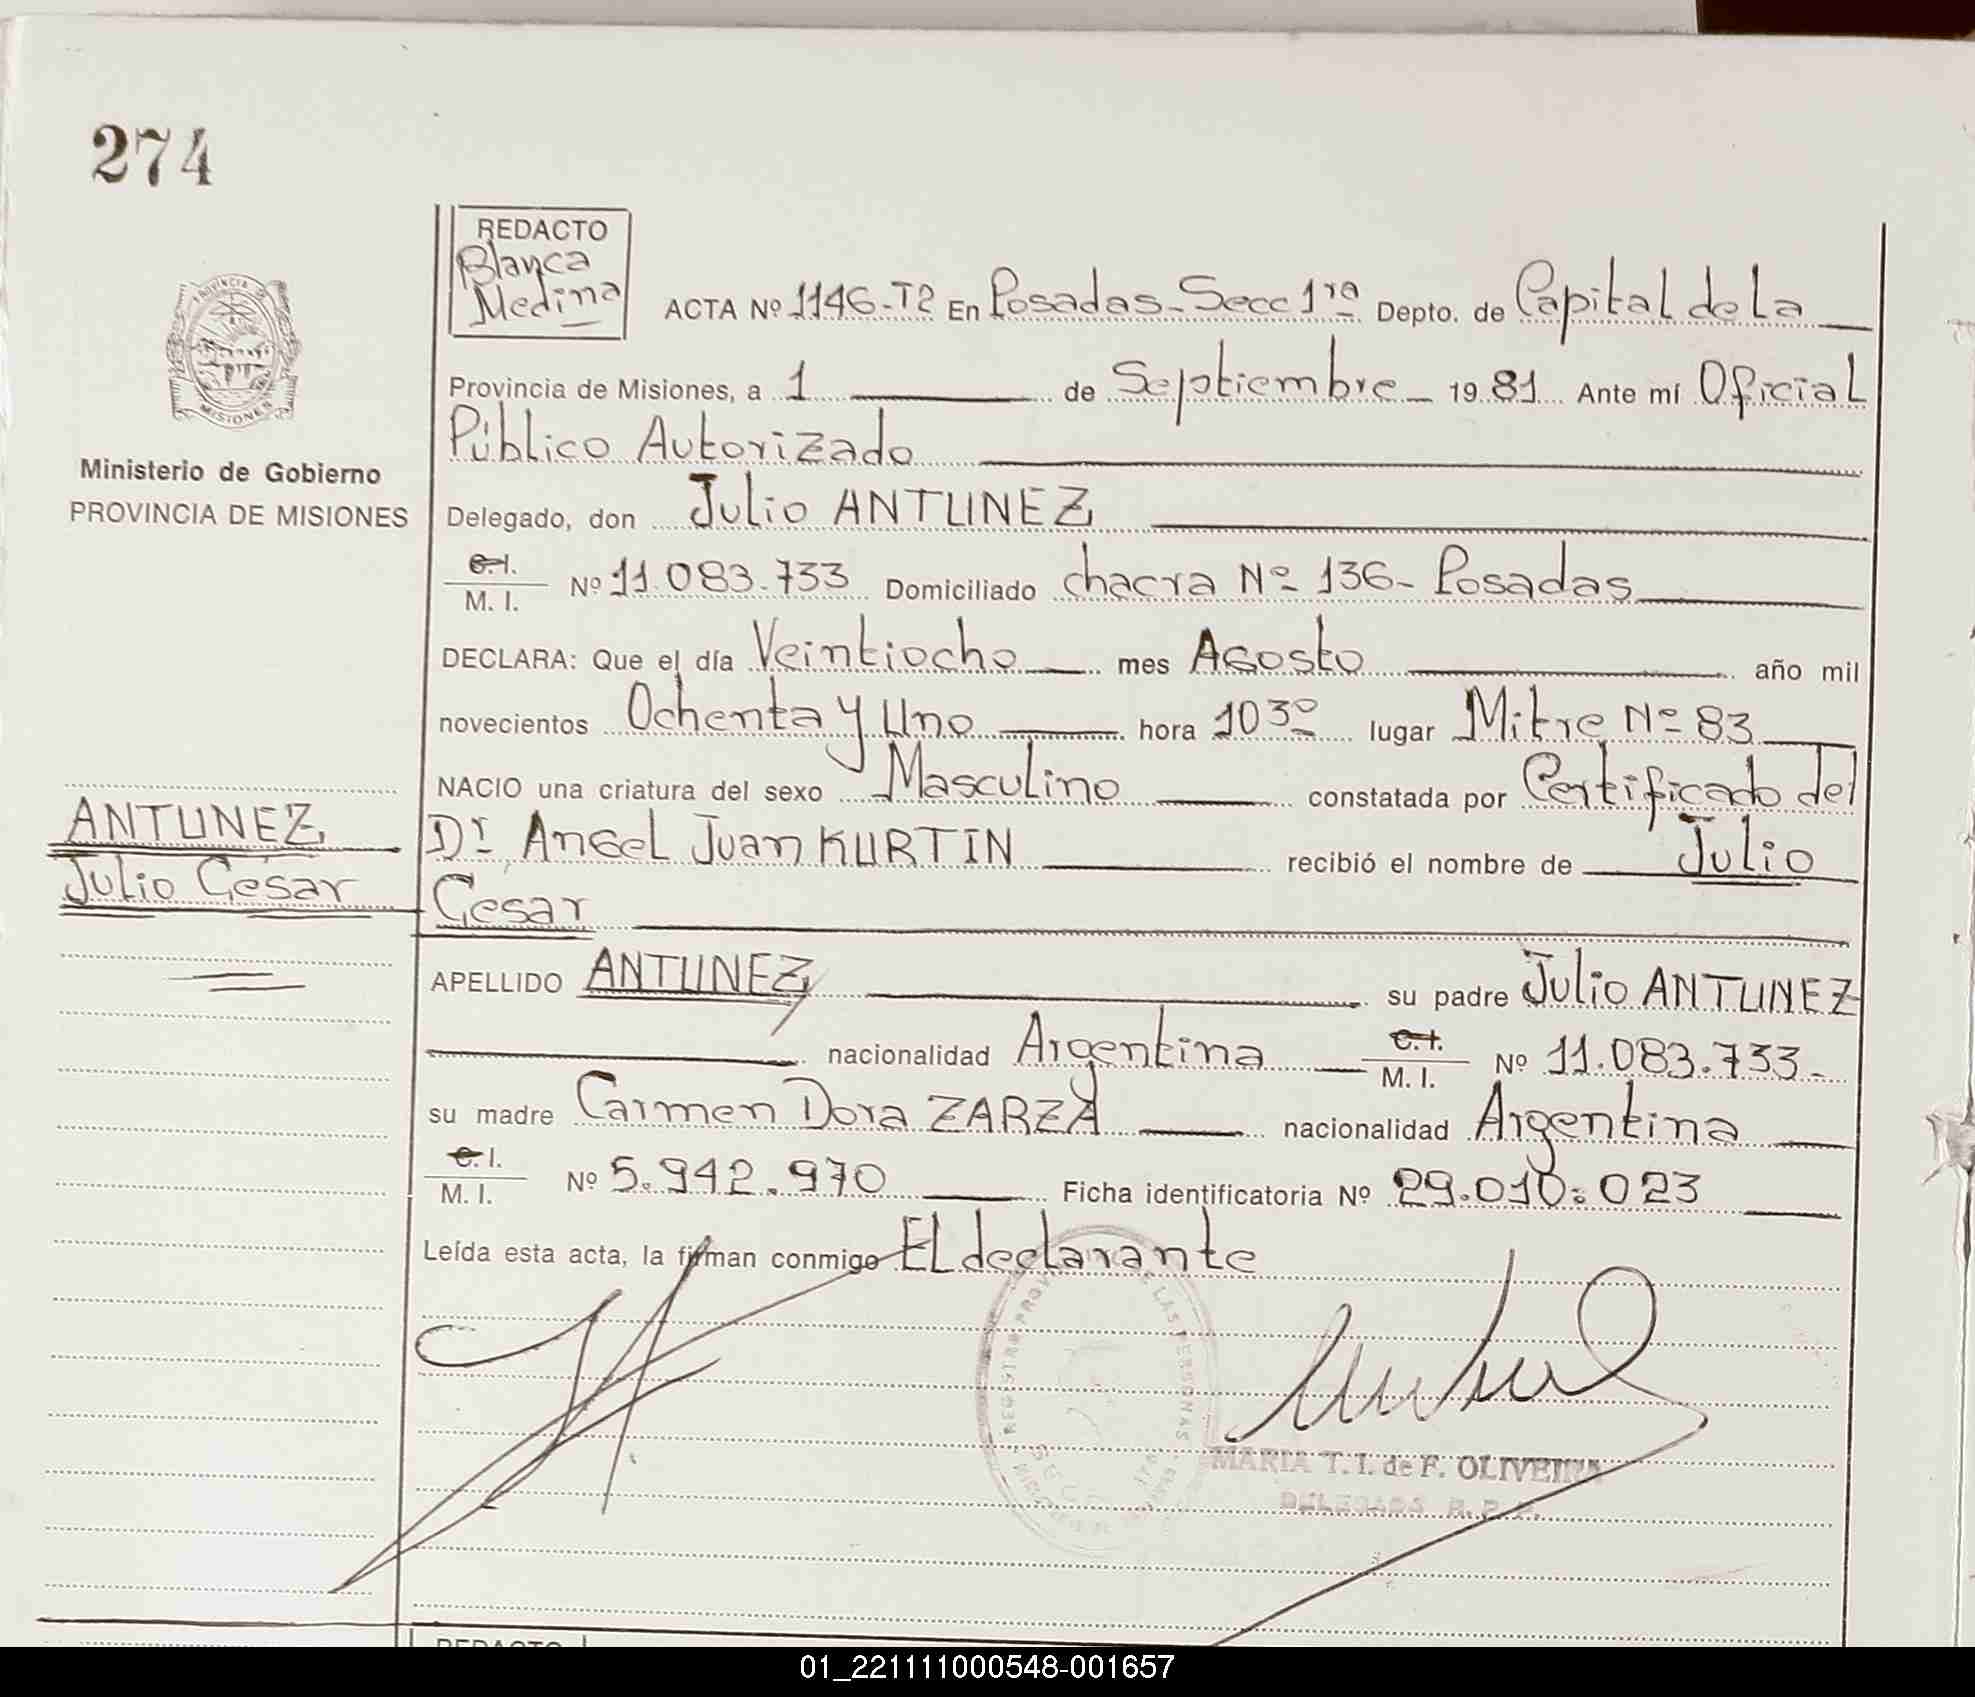 274
REDACTO
Blanca
Medina
ACTA Nº 1146-T2 En Posadas-Secc 1ra Depto. de Capital de La
Provincia de Misiones, a 1 de Septiembre 19 81 Ante mí Oficial
Público Autorizado
Ministerio de Gobierno
PROVINCIA DE MISIONES
Delegado, don Julio ANTUNEZ
C.I.
M. I. Nº 11.083.733 Domiciliado chacra Nº 136- Posadas
DECLARA: Que el día Veintiocho mes Agosto año mil
novecientos Ochenta y Uno hora 10 30 lugar Mitre Nº 83
NACIO una criatura del sexo Masculino constatada por Certificado del
Dr. Angel Juan KURTIN recibió el nombre de Julio
Cesar
ANTUNEZ
Julio Cesar
APELLIDO ANTUNEZ su padre Julio ANTUNEZ
nacionalidad Argentina C.I.
M. I. Nº 11.083.733-
su madre Carmen Dora ZARZA nacionalidad Argentina
C.I.
M. I. Nº 5.942.970 Ficha identificatoria Nº 29.010.023
Leída esta acta, la firman conmigo El declarante
MARIA T. I. de F. OLIVEIRA
DELEGADA R. P. P.
REDACTO
01_221111000548-001657